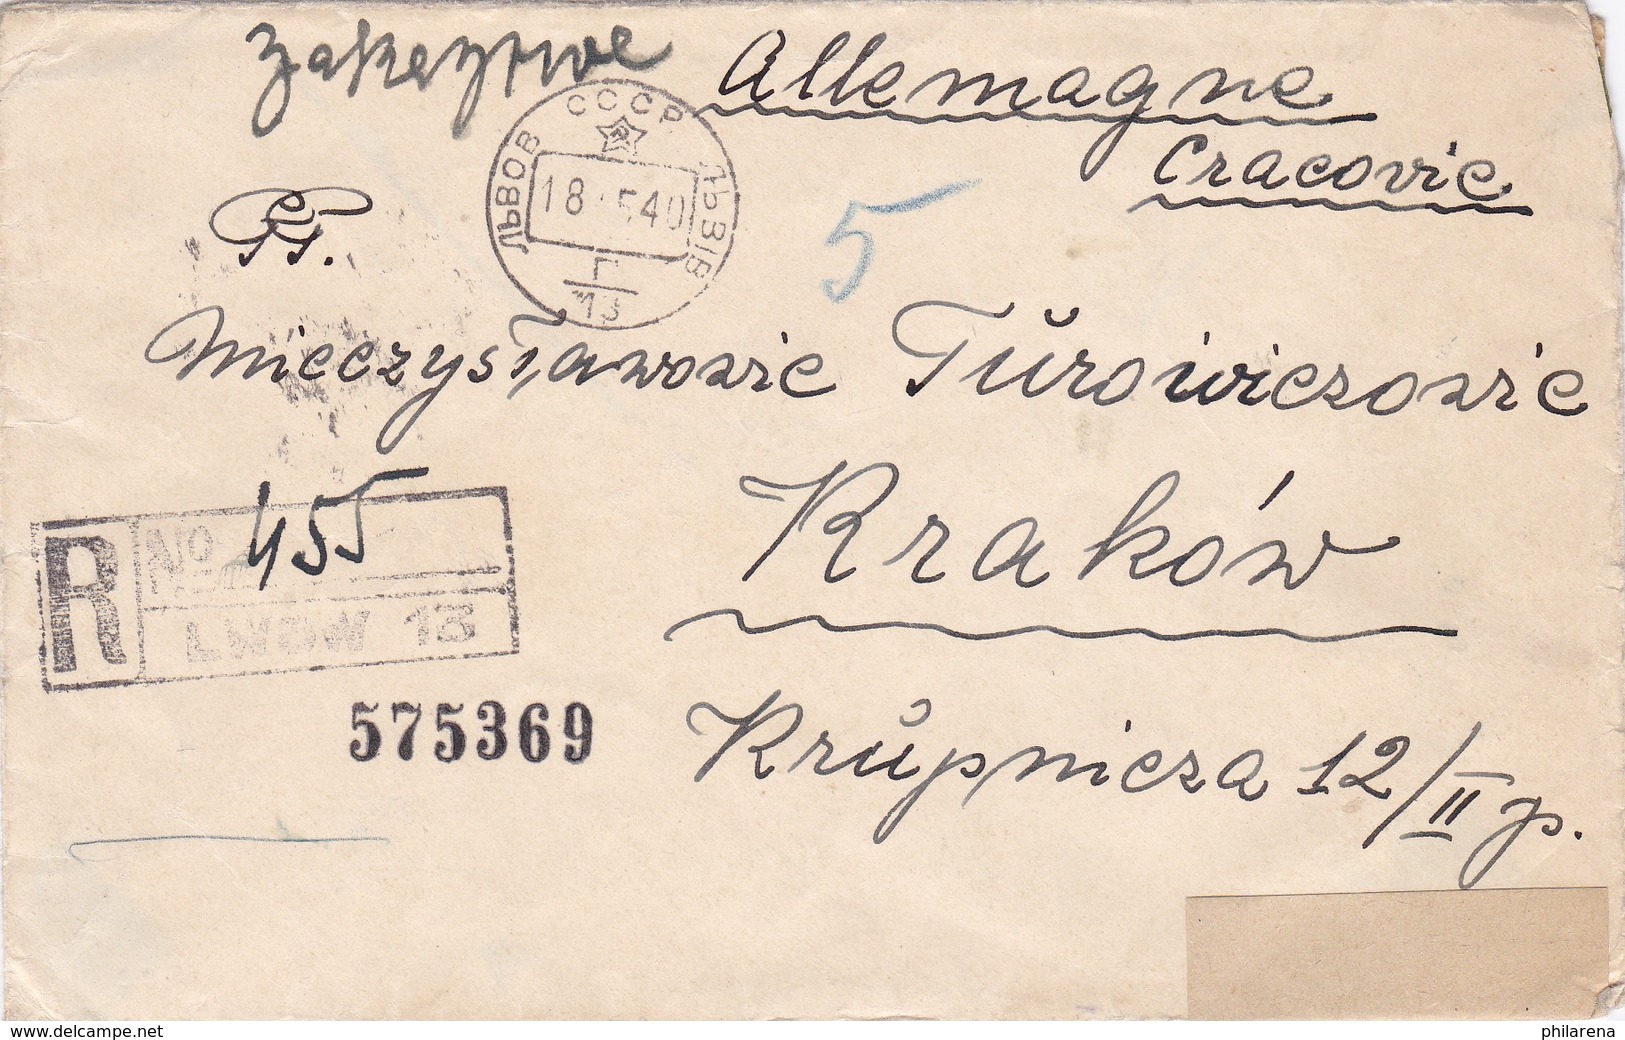 Allemagne
Cracovie
СССР
ЛЬВОВ ЛЬВІВ
18 5 40
Г
13
5
PP.
Mieczysławowie Tŭrowiczowie
455
Kraków
R No
LWOW 13
575369
Krŭpnicza 12/II p.
delcampe.net
philarena